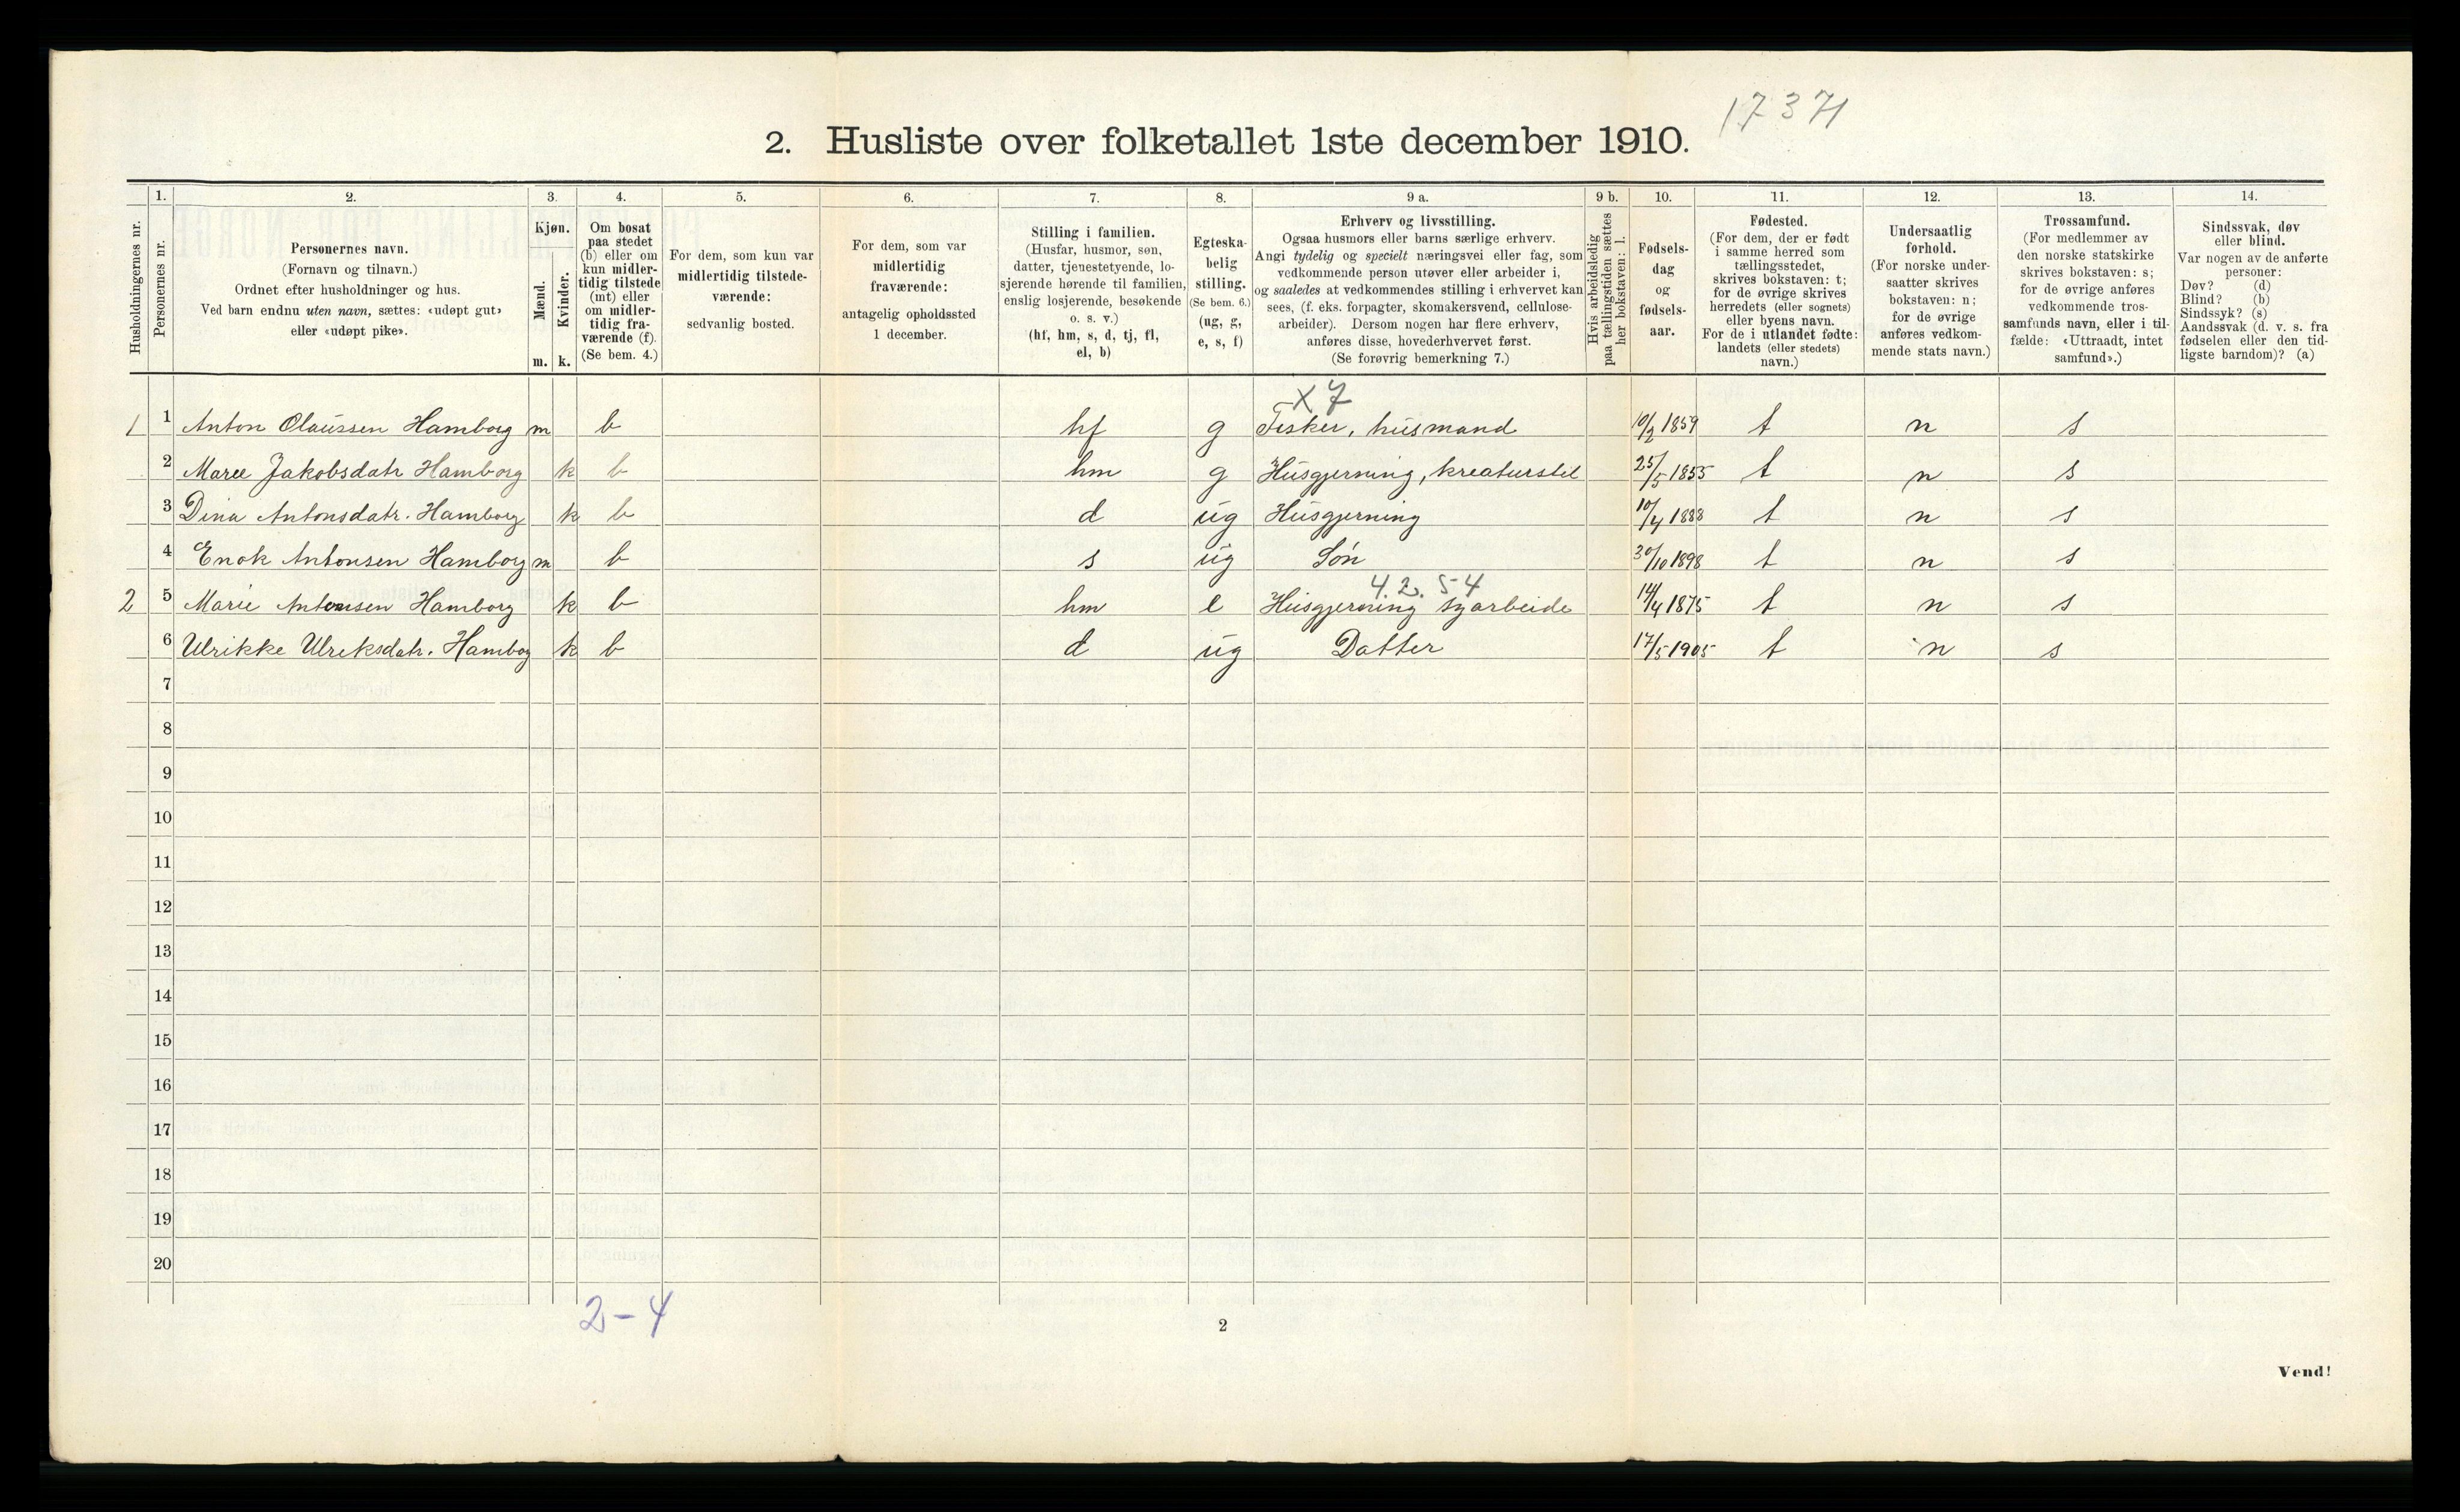 17371
2. Husliste over folketallet 1ste december 1910.
1. 2. 3. 4. 5. 6. 7. 8. 9 a. 9 b. 10. 11. 12. 13. 14.
Husholdningernes nr.
Personernes nr.
Personernes navn.
(Fornavn og tilnavn.)
Ordnet efter husholdninger og hus.
Ved barn endnu uten navn, sættes: «udøpt gut»
eller «udøpt pike».
Kjøn.
Mænd.
Kvinder.
m. k.
Om bosat
paa stedet
(b) eller om
kun midler-
tidig tilstede
(mt) eller
om midler-
tidig fra-
værende (f).
(Se bem. 4.)
For dem, som kun var
midlertidig tilstede-
værende:
sedvanlig bosted.
For dem, som var
midlertidig
fraværende:
antagelig opholdssted
1 december.
Stilling i familien.
(Husfar, husmor, søn,
datter, tjenestetyende, lo-
sjerende hørende til familien,
enslig losjerende, besøkende
o. s. v.)
(hf, hm, s, d, tj, fl,
el, b)
Egteska-
belig
stilling.
(Se bem. 6.)
(ug, g,
e, s, f)
Erhverv og livsstilling.
Ogsaa husmors eller barns særlige erhverv.
Angi tydelig og specielt næringsvei eller fag, som
vedkommende person utøver eller arbeider i,
og saaledes at vedkommendes stilling i erhvervet kan
sees, (f. eks. forpagter, skomakersvend, cellulose-
arbeider). Dersom nogen har flere erhverv,
anføres disse, hovederhvervet først.
(Se forøvrig bemerkning 7.)
Hvis arbeidsledig
paa tællingstiden sættes
her bokstaven: l.
Fødsels-
dag
og
fødsels-
aar.
Fødested.
(For dem, der er født
i samme herred som
tællingsstedet,
skrives bokstaven: t;
for de øvrige skrives
herredets (eller sognets)
eller byens navn.
For de i utlandet fødte:
landets (eller stedets)
navn.)
Undersaatlig
forhold.
(For norske under-
saatter skrives
bokstaven: n;
for de øvrige
anføres vedkom-
mende stats navn.)
Trossamfund.
(For medlemmer av
den norske statskirke
skrives bokstaven: s;
for de øvrige anføres
vedkommende tros-
samfunds navn, eller i til-
fælde: «Uttraadt, intet
samfund».)
Sindssvak, døv
eller blind.
Var nogen av de anførte
personer:
Døv? (d)
Blind? (b)
Sindssyk? (s)
Aandssvak (d. v. s. fra
fødselen eller den tid-
ligste barndom)? (a)
x 7
1 1 Anton Olaussen Hamborg m b hf g Fisker, husmand 10/2 1859 t n s
2 Maree Jakobsdatr Hamborg k b hm g Husgjerning, kreaturstel 25/5 1855 t n s
3 Dina Antonsdatr. Hamborg k b d ug Husgjerning 10/4 1888 t n s
4 Enok Antonsen Hamborg m b s ug Søn 30/10 1898 t n s
4.2.54
2 5 Marie Antonsen Hamborg k b hm e Husgjerning syarbeide 14/4 1875 t n s
6 Ulrikke Ulreksdatr. Hamborg k b d ug Datter 17/5 1905 t n s
7
8
9
10
11
12
13
14
15
16
17
18
19
20
2-4
2
Vend!